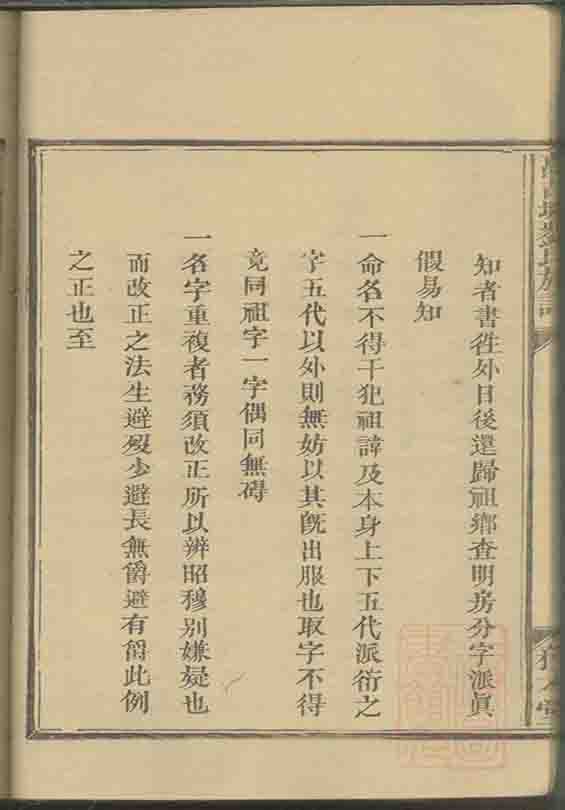 知者書徃外日後還歸祖鄉查明房分字派眞
假易知
一命名不得干犯祖諱及本身上下五代派衍之
字五代以外則無妨以其旣出服也取字不得
竟同祖字一字偶同無碍
一名字重複者務須改正所以辨昭穆別嫌疑也
而改正之法生避殁少避長無爵避有爵此例
之正也至